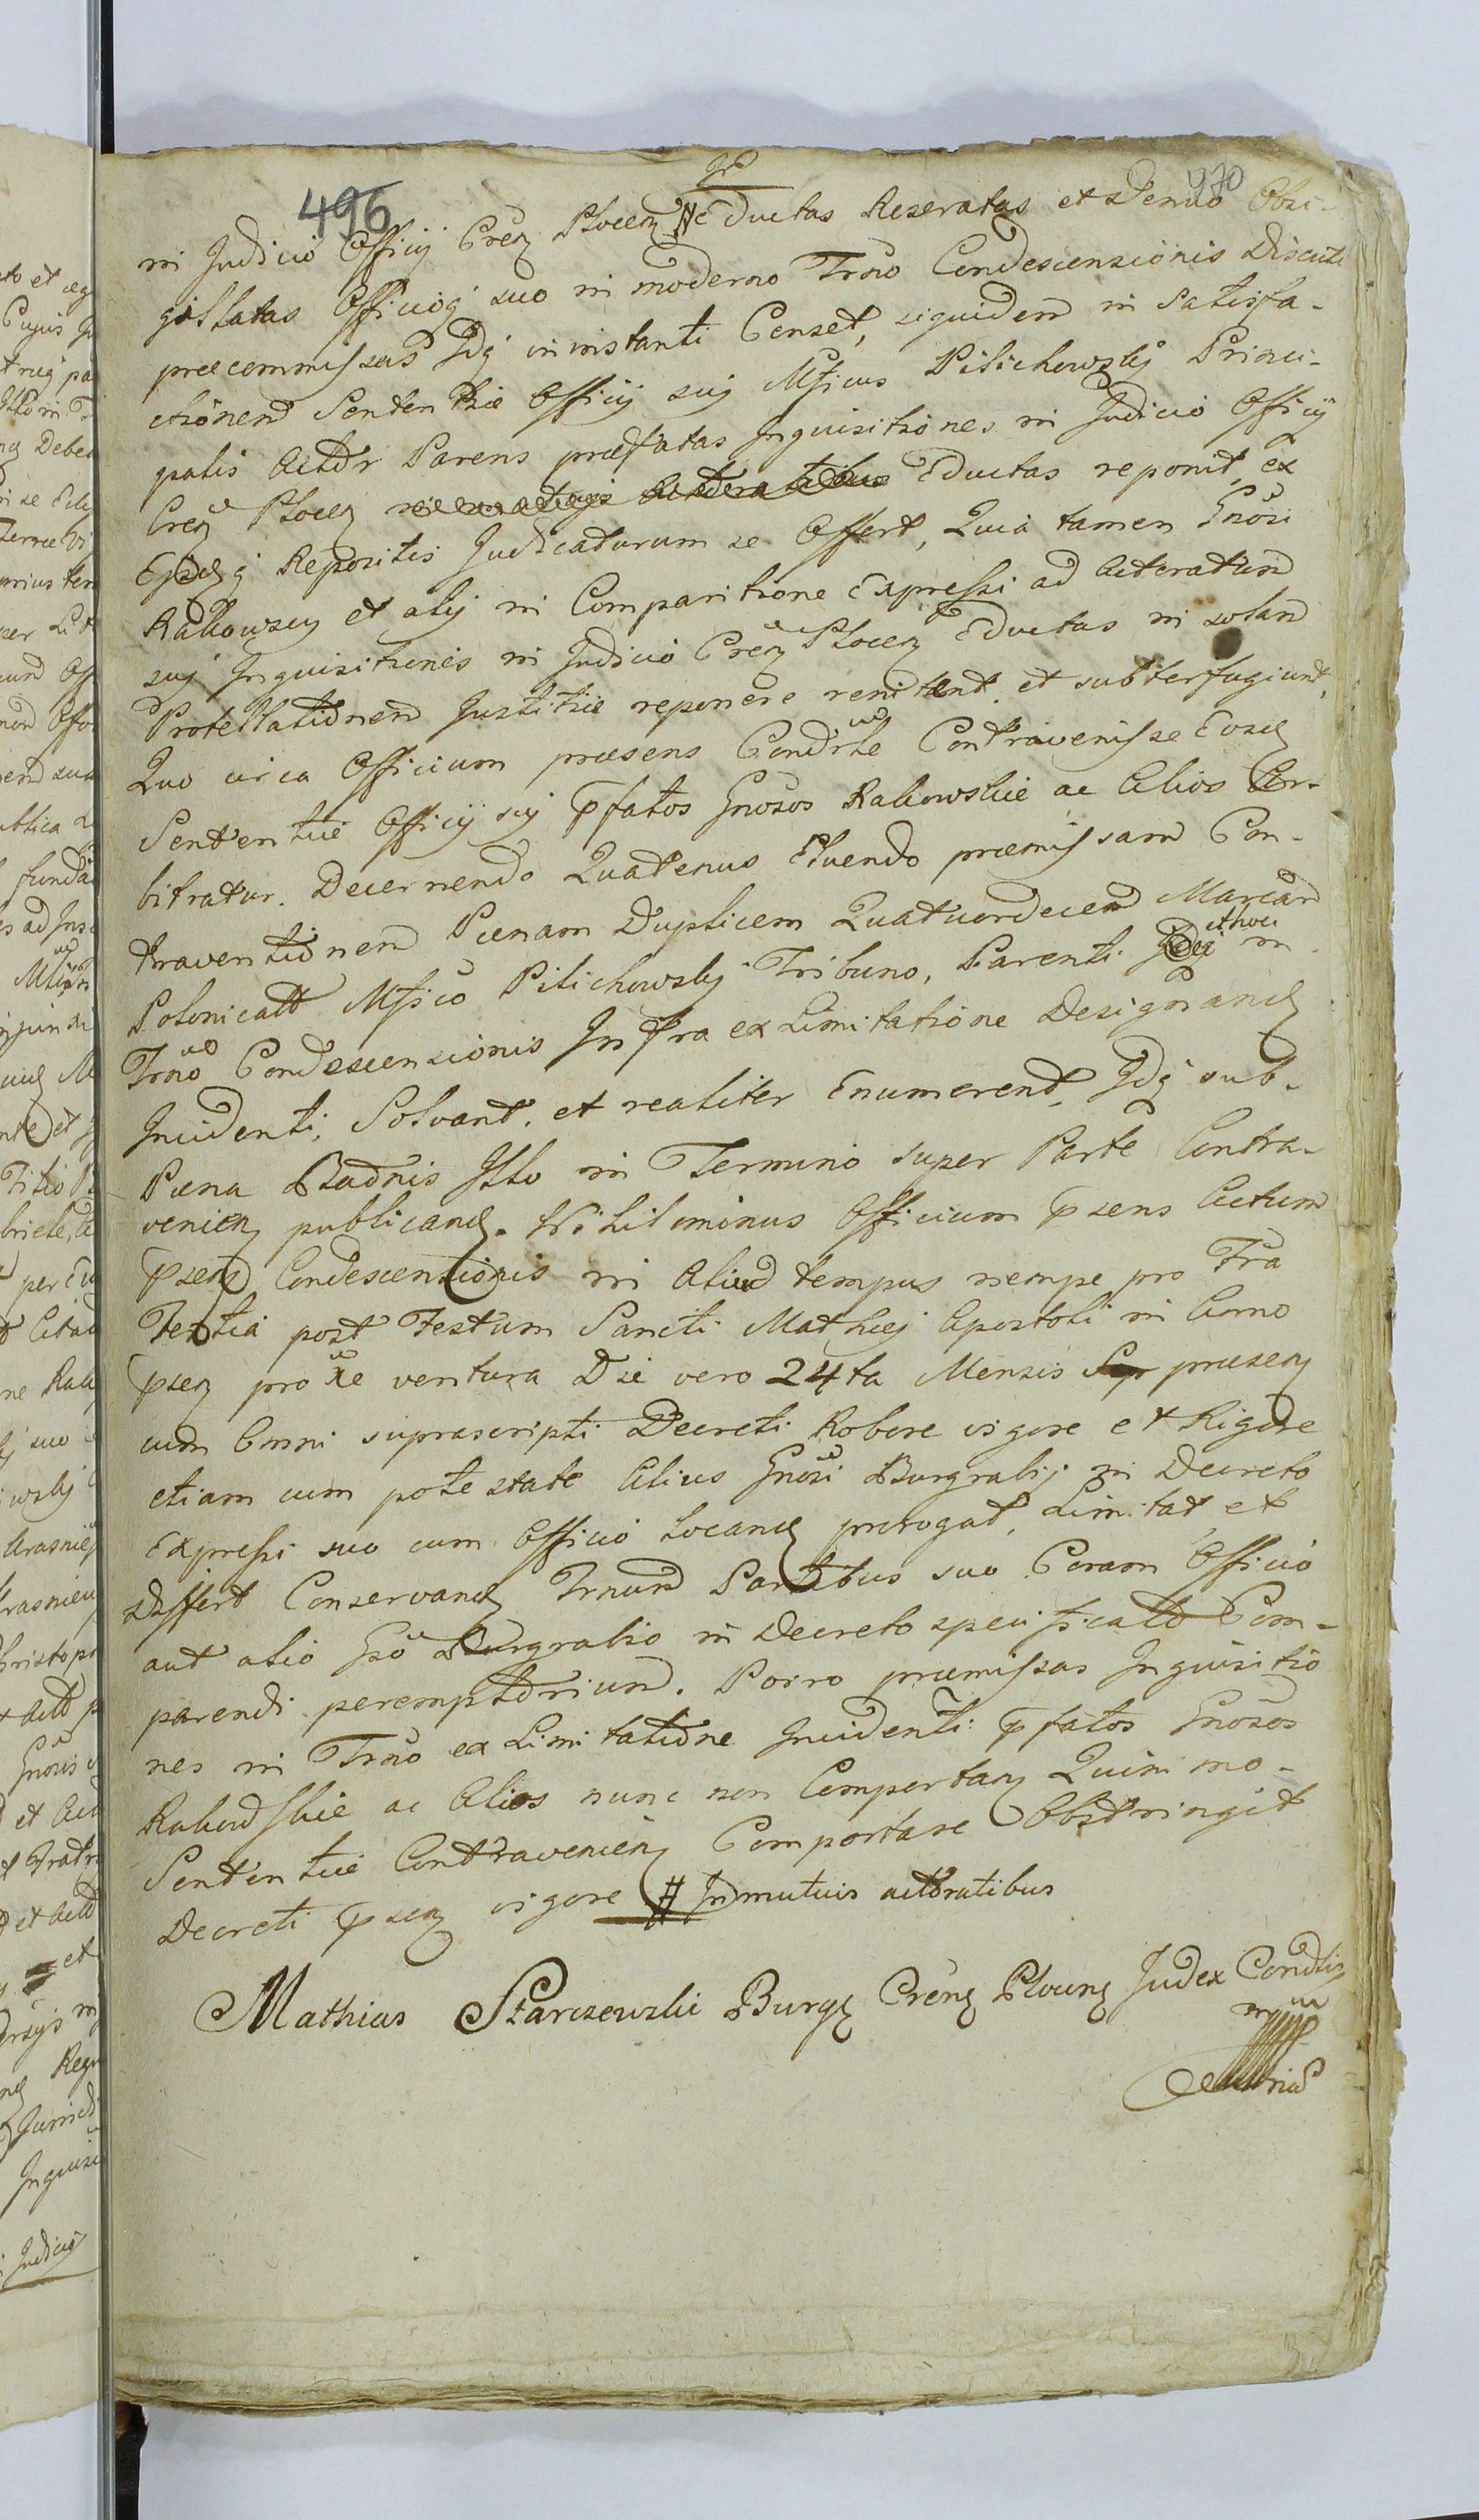 496
470
in Judicio Officij Cren Plocen # Eductas Reseratas et denuo Obsi-
gillatas Officioq suo in moderno Trno Condescensionis Discuti
praecommissas Idq in instanti Censet, siquidem in Satisfa-
ctionem Sententiae Officij sui Mficus Pilichowski Princi-
palis Actor Parens praefatas Inquisitiones in Judicio Officij
Cren Plocen Eductas reponit, ex
Eisq Repositis Judicaturum se Offert, Quia tamen Gnosi
Rakowscy et alij in Comparitione Expressi ad Actoratum
sui Inquisitiones in Judicio Cren Plocen Eductas in solam
Protestationem Justitiae reponere renitent et subterfugiunt,
Quo circa Officium praesens Condrle Contravenisse Eosd
Sententiae Officij sui pfatos Gnosos Rakowskie ac Alios Ar-
bitratur. Decernendo Quatenus Eluendo praemissam Con-
traventionem Paenam Duplicem Quatuordecem Marcar
Polonicall Mfico Pilichowski Tribuno, Parenti Idq in
Trno Condescensionis Infra ex Limitatione Designand
Incidenti, Solvant, et realiter Enumerent, Idq sub-
Paena Bannis Isto in Termino super Parte Contra-
venien publicand. Nihilominus Officium psens Actum
psens Condescensionis in Aliud tempus nempe pro Fra
Tertia post Festum Sancti Mathaei Apostoli in Anno
psen proxe ventura Die vero 24ta Mensis praesen
cum Omni suprascripti Decreti Robore vigore et Rigore
etiam cum potestate Alius Gnosi Burgrabij in Decreto
Expressi suo cum Officio Locand prorogat, Limitat et
Differt Conservand Trnum Partibus suo Coram Officio
aut alio Gso Burgrabio in Decreto specificato Com-
parendi peremptorium. Porro praemissas Inquisitio
nes in Trno ex Limitatione Incidenti pfatos Gnosos
Rakowskie ac Alios nunc non Comportan Quinimo-
Sententiae Contravenien Comportare Obstringit
Decreti psen vigore # In mutuis actoratibus
Mathias Starczewski Burg Crens Plocens Judex Condlis
mp